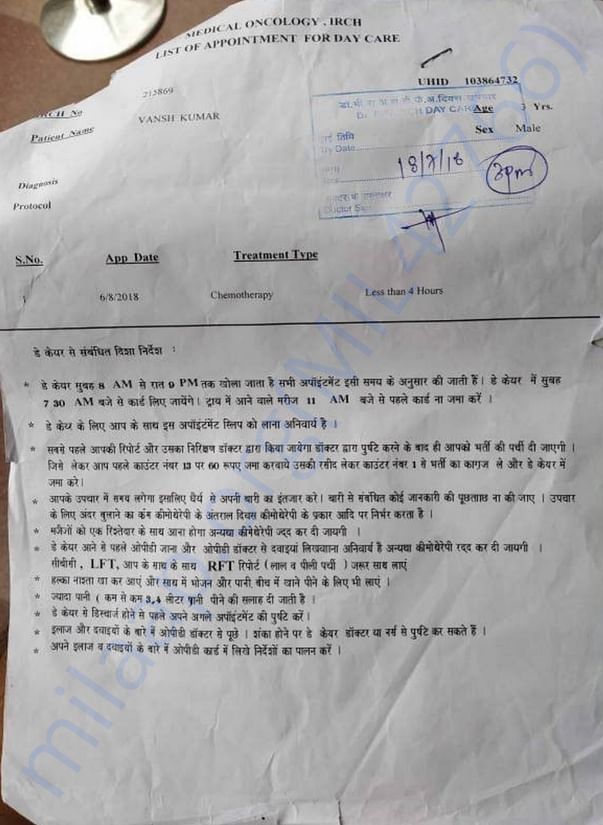 MEDICAL ONCOLOGY, IRCH
LIST OF APPOINTMENT FOR DAY CARE
UHID 103864732
IRCH No 215869
Patient Name VANSH KUMAR
Age 3 Yrs.
Sex Male
DAY CARE
तिथि
Date
18/7/18
3pm
Diagnosis
Protocol
S.No. App Date Treatment Type
1 6/8/2018 Chemotherapy Less than 4 Hours
डे केयर से संबंधित दिशा निर्देश :
* डे केयर सुबह 8 AM से रात 9 PM तक खोला जाता है सभी अपॉइंटमेंट इसी समय के अनुसार की जाती हैं। डे केयर में सुबह
7 30 AM बजे से कार्ड लिए जायेंगे। ट्राय में आने वाले मरीज 11 AM बजे से पहले कार्ड ना जमा करें ।
* डे केयर के लिए आप के साथ इस अपॉइंटमेंट स्लिप को लाना अनिवार्य है ।
* सबसे पहले आपकी रिपोर्ट और उसका निरिक्षण डॉक्टर द्वारा किया जायेगा डॉक्टर द्वारा पुष्टि करने के बाद ही आपको भर्ती की पर्ची दी जाएगी ।
जिसे लेकर आप पहले काउंटर नंबर 13 पर 60 रूपए जमा करवाये उसकी रसीद लेकर काउंटर नंबर 1 से भर्ती का कागज ले और डे केयर में
जमा करे।
* आपके उपचार में समय लगेगा इसलिए धैर्य से अपनी बारी का इंतजार करे। बारी से संबंधित कोई जानकारी की पूछताछ ना की जाए । उपचार
के लिए अंदर बुलाने का क्रम कीमोथेरेपी के अंतराल दिवस कीमोथेरेपी के प्रकार आदि पर निर्भर करता है ।
* मरीजों को एक रिश्तेदार के साथ आना होगा अन्यथा कीमोथेरेपी रद्द कर दी जायगी ।
* डे केयर आने से पहले ओपीडी जाना और ओपीडी डॉक्टर से दवाइयां लिखवाना अनिवार्य है अन्यथा कीमोथेरेपी रदद कर दी जायगी ।
सीबीसी , LFT, आप के साथ के साथ RFT रिपोर्ट (लाल व पीली पर्ची ) जरूर साथ लाएं
* हल्का नाश्ता खा कर आएं और साथ में भोजन और पानी बीच में खाने पीने के लिए भी लाएं ।
* ज्यादा पानी ( कम से कम 3,4 लीटर पानी पीने की सलाह दी जाती है ।
* डे केयर से डिस्चार्ज होने से पहले अपने अगले अपॉइंटमेंट की पुष्टि करें ।
* इलाज और दवाइयों के बारे में ओपीडी डॉक्टर से पूछे । शंका होने पर डे केयर डॉक्टर या नर्स से पुष्टि कर सकते हैं ।
* अपने इलाज व दवाइयों के बारे में ओपीडी कार्ड में लिखे निर्देशों का पालन करें ।